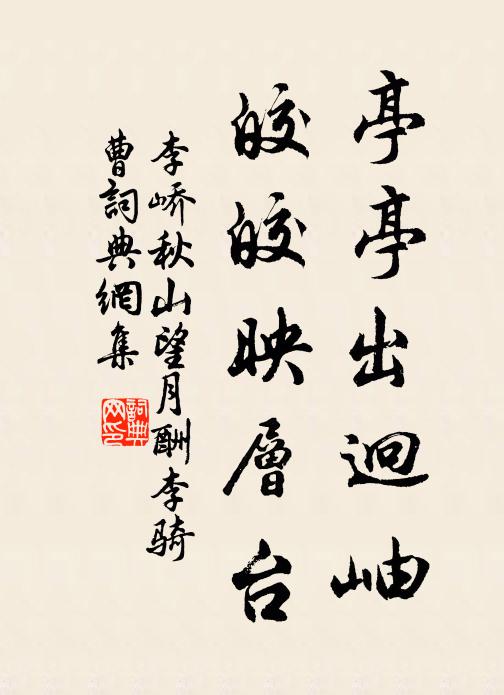 亭亭出迥岫
皎皎映層台
李峤秋山望月酬李骑
曹詞典網集
詞典网印